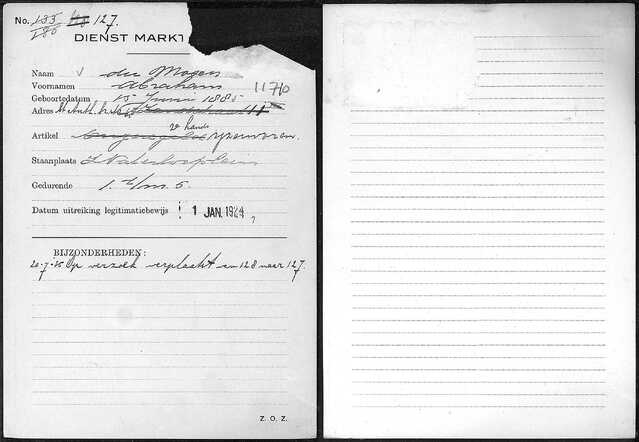 No. 135 48 127.
180
DIENST MARKT
Naam v der Mogen
Voornamen Abraham 11710
Geboortedatum 15 Juni 1885
Adres 11
2e hands
Artikel ijzerwaren.
Staanplaats Waterlooplein
Gedurende 1 t/m 5.
Datum uitreiking legitimatiebewijs 1 JAN. 1924
BIJZONDERHEDEN:
20-7-25 Op verzoek verplaatst van 128 naar 127.
Z. O. Z.